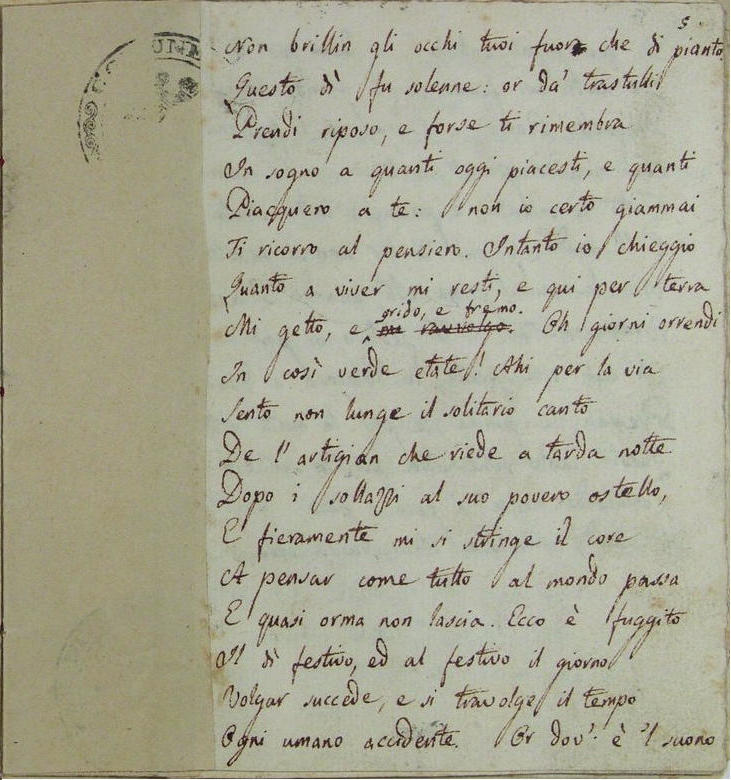 5.
Non brillin gli occhi tuoi fuor che di pianto.
Questo dì fu solenne: or da' trastulli
Prendi riposo, e forse ti rimembra
In sogno a quanti oggi piacesti, e quanti
Piacquero a te: non io certo giammai
Ti ricorro al pensiero. Intanto io chieggio
Quanto a viver mi resti, e qui per terra
grido, e fremo.
Mi getto, e mi ravvolgo. Oh giorni orrendi
In così verde etate! Ahi per la via
Sento non lunge il solitario canto
De l'artigian che riede a tarda notte
Dopo i sollazzi al suo povero ostello,
E fieramente mi si stringe il core
A pensar come tutto al mondo passa
E quasi orma non lascia. Ecco è fuggito
Il dì festivo, ed al festivo il giorno
Volgar succede, e si travolge il tempo
Ogni umano accidente. Or dov'è 'l suono